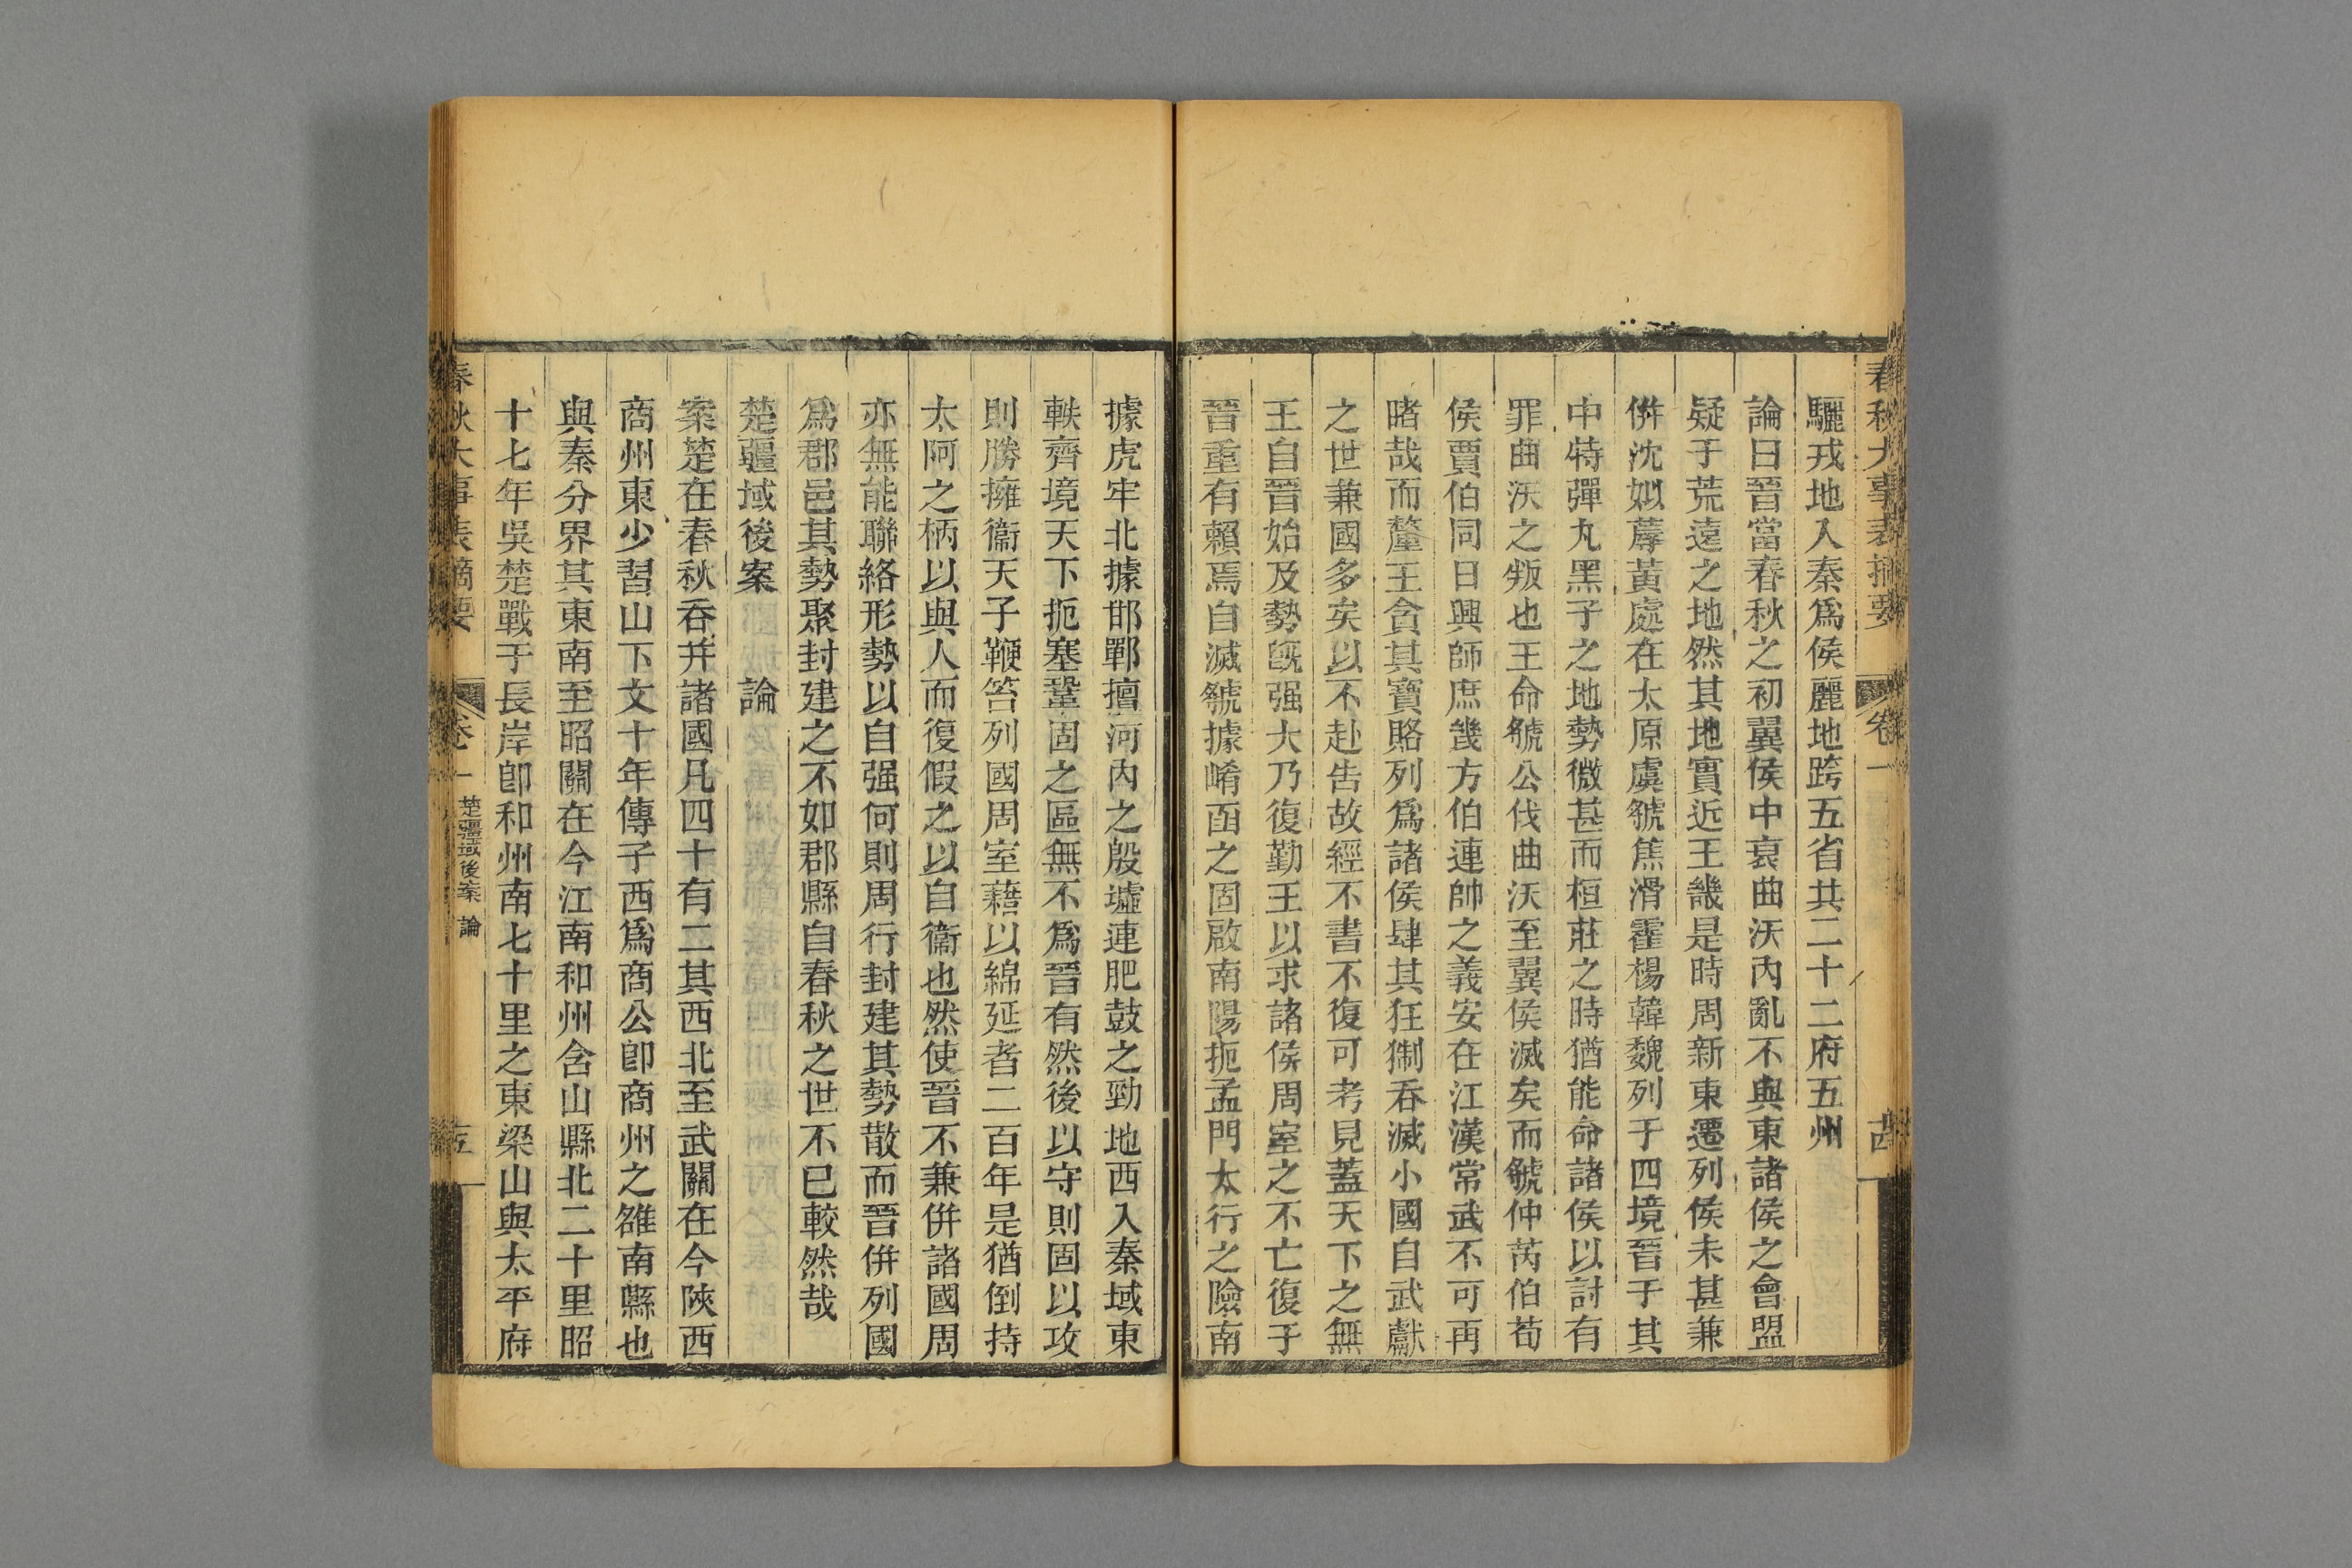 春秋大事表摘要 卷一 十四
驪戎地入秦爲侯麗地跨五省共二十二府五州
論曰晉當春秋之初翼侯中衰曲沃內亂不與東諸侯之會盟
疑于荒遠之地然其地實近王畿是時周新東遷列侯未甚兼
倂沈姒蓐黃處在太原虞虢焦滑霍楊韓魏列于四境晉于其
中特彈丸黑子之地勢微甚而桓莊之時猶能命諸侯以討有
罪曲沃之叛也王命虢公伐曲沃至翼侯滅矣而虢仲芮伯荀
侯賈伯同日興師庶幾方伯連帥之義安在江漢常武不可再
睹哉而釐王貪其寶賂列爲諸侯肆其狂猘呑滅小國自武獻
之世兼國多矣以不赴告故經不書不復可考見蓋天下之無
王自晉始及勢旣强大乃復勤王以求諸侯周室之不亡復于
晉重有賴焉自滅虢據崤函之固啟南陽扼孟門太行之險南
據虎牢北據邯鄲擅河內之殷墟連肥鼓之勁地西入秦域東
軼齊境天下扼塞鞏固之區無不爲晉有然後以守則固以攻
則勝擁衞天子鞭笞列國周室藉以綿延者二百年是猶倒持
太阿之柄以與人而復假之以自衞也然使晉不兼倂諸國周
亦無能聯絡形勢以自强何則周行封建其勢散而晉倂列國
爲郡邑其勢聚封建之不如郡縣自春秋之世不已較然哉
楚疆域後案 論
案楚在春秋呑幷諸國凡四十有二其西北至武關在今陝西
商州東少習山下文十年傳子西爲商公卽商州之雒南縣也
與秦分界其東南至昭關在今江南和州含山縣北二十里昭
十七年吳楚戰于長岸卽和州南七十里之東梁山與太平府
春秋大事表摘要 卷一 楚疆域後案 論